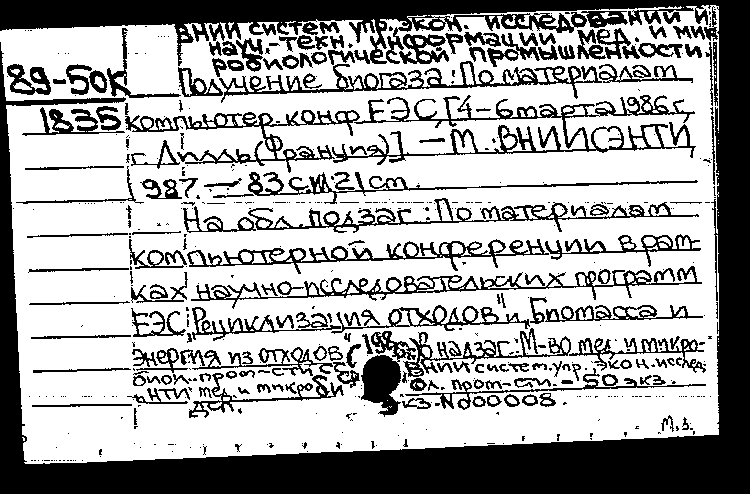 ВНИИ систем упр., экон. исследований и
науч.-техн. информации мед. и мик
робиологической промышленности.
89-50К
Получение биогаза: По материалам
1835
компьютер. конф ЕЭС [4-6 марта 1986 г,
г. Лилль (Франция)] — М.: ВНИИСЭНТИ,
1987. — 83 с ил, 21 см.
На обл. подзаг.: По материалам
компьютерной конференции в рам-
ках научно-исследовательских программ
ЕЭС "Рециклизация отходов" и "Биомасса и
энергия из отходов" (198 В надзаг.: М-во мед. и микро-
биол. пром-сти СССР ВНИИ систем. упр., экон. исслед.
и НТИ мед. и микробиол. пром-сти. — 50 экз.
ДСП. Экз. N000008.
М.З.